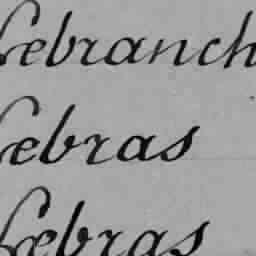 Lebranch
Lebras
Lebras